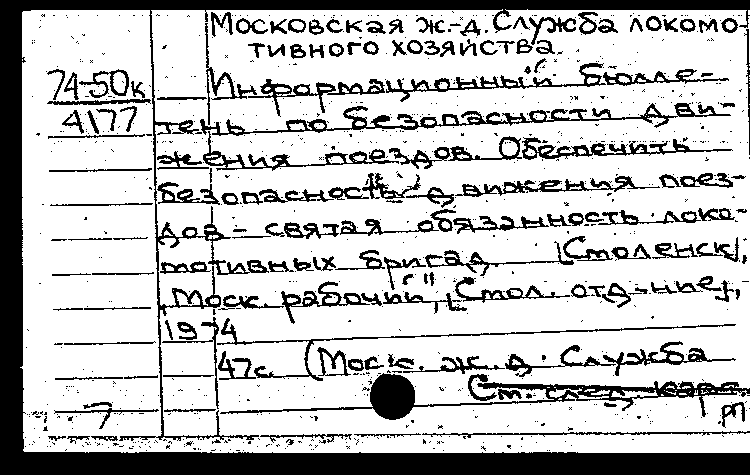 Московская ж.-д. Служба локомо-
тивного хозяйства.
74-50к
4177
Информационный бюлле-
тень по безопасности дви-
жения поездов. Обеспечить
безопасность движения поез-
дов - святая обязанность локо-
мотивных бригад. [Смоленск],
"Моск. рабочий", [Смол. отд-ние],
1974
47с. (Моск. ж.д. Служба
См. след. карт.
7
1 РП